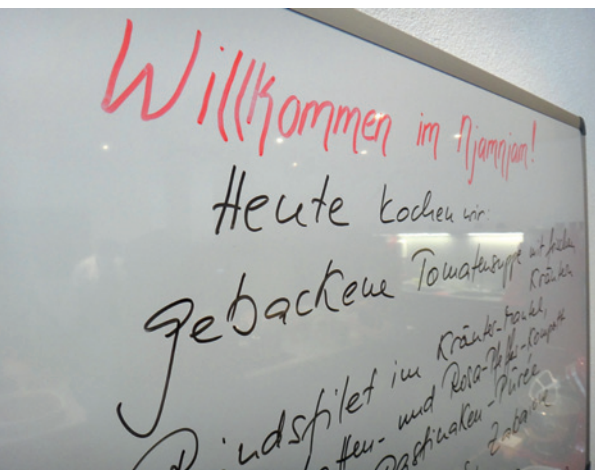 Willkommen im Njamnjam!
Heute kochen wir:
gebackene Tomatensuppe mit frischen
Kräutern
Rindsfilet im Kräuter-Mantel,
und Rosa-Pfeffer-Kompott
Pastinaken-Püree